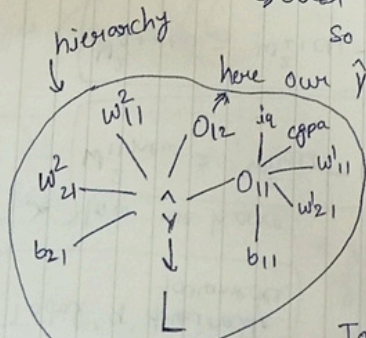 So
hierarchy
here our ŷ
w²₁₁ O₁₂ iq cgpa
w²₂₁ ŷ O₁₁ w¹₁₁
w¹₂₁
b₂₁ b₁₁
L